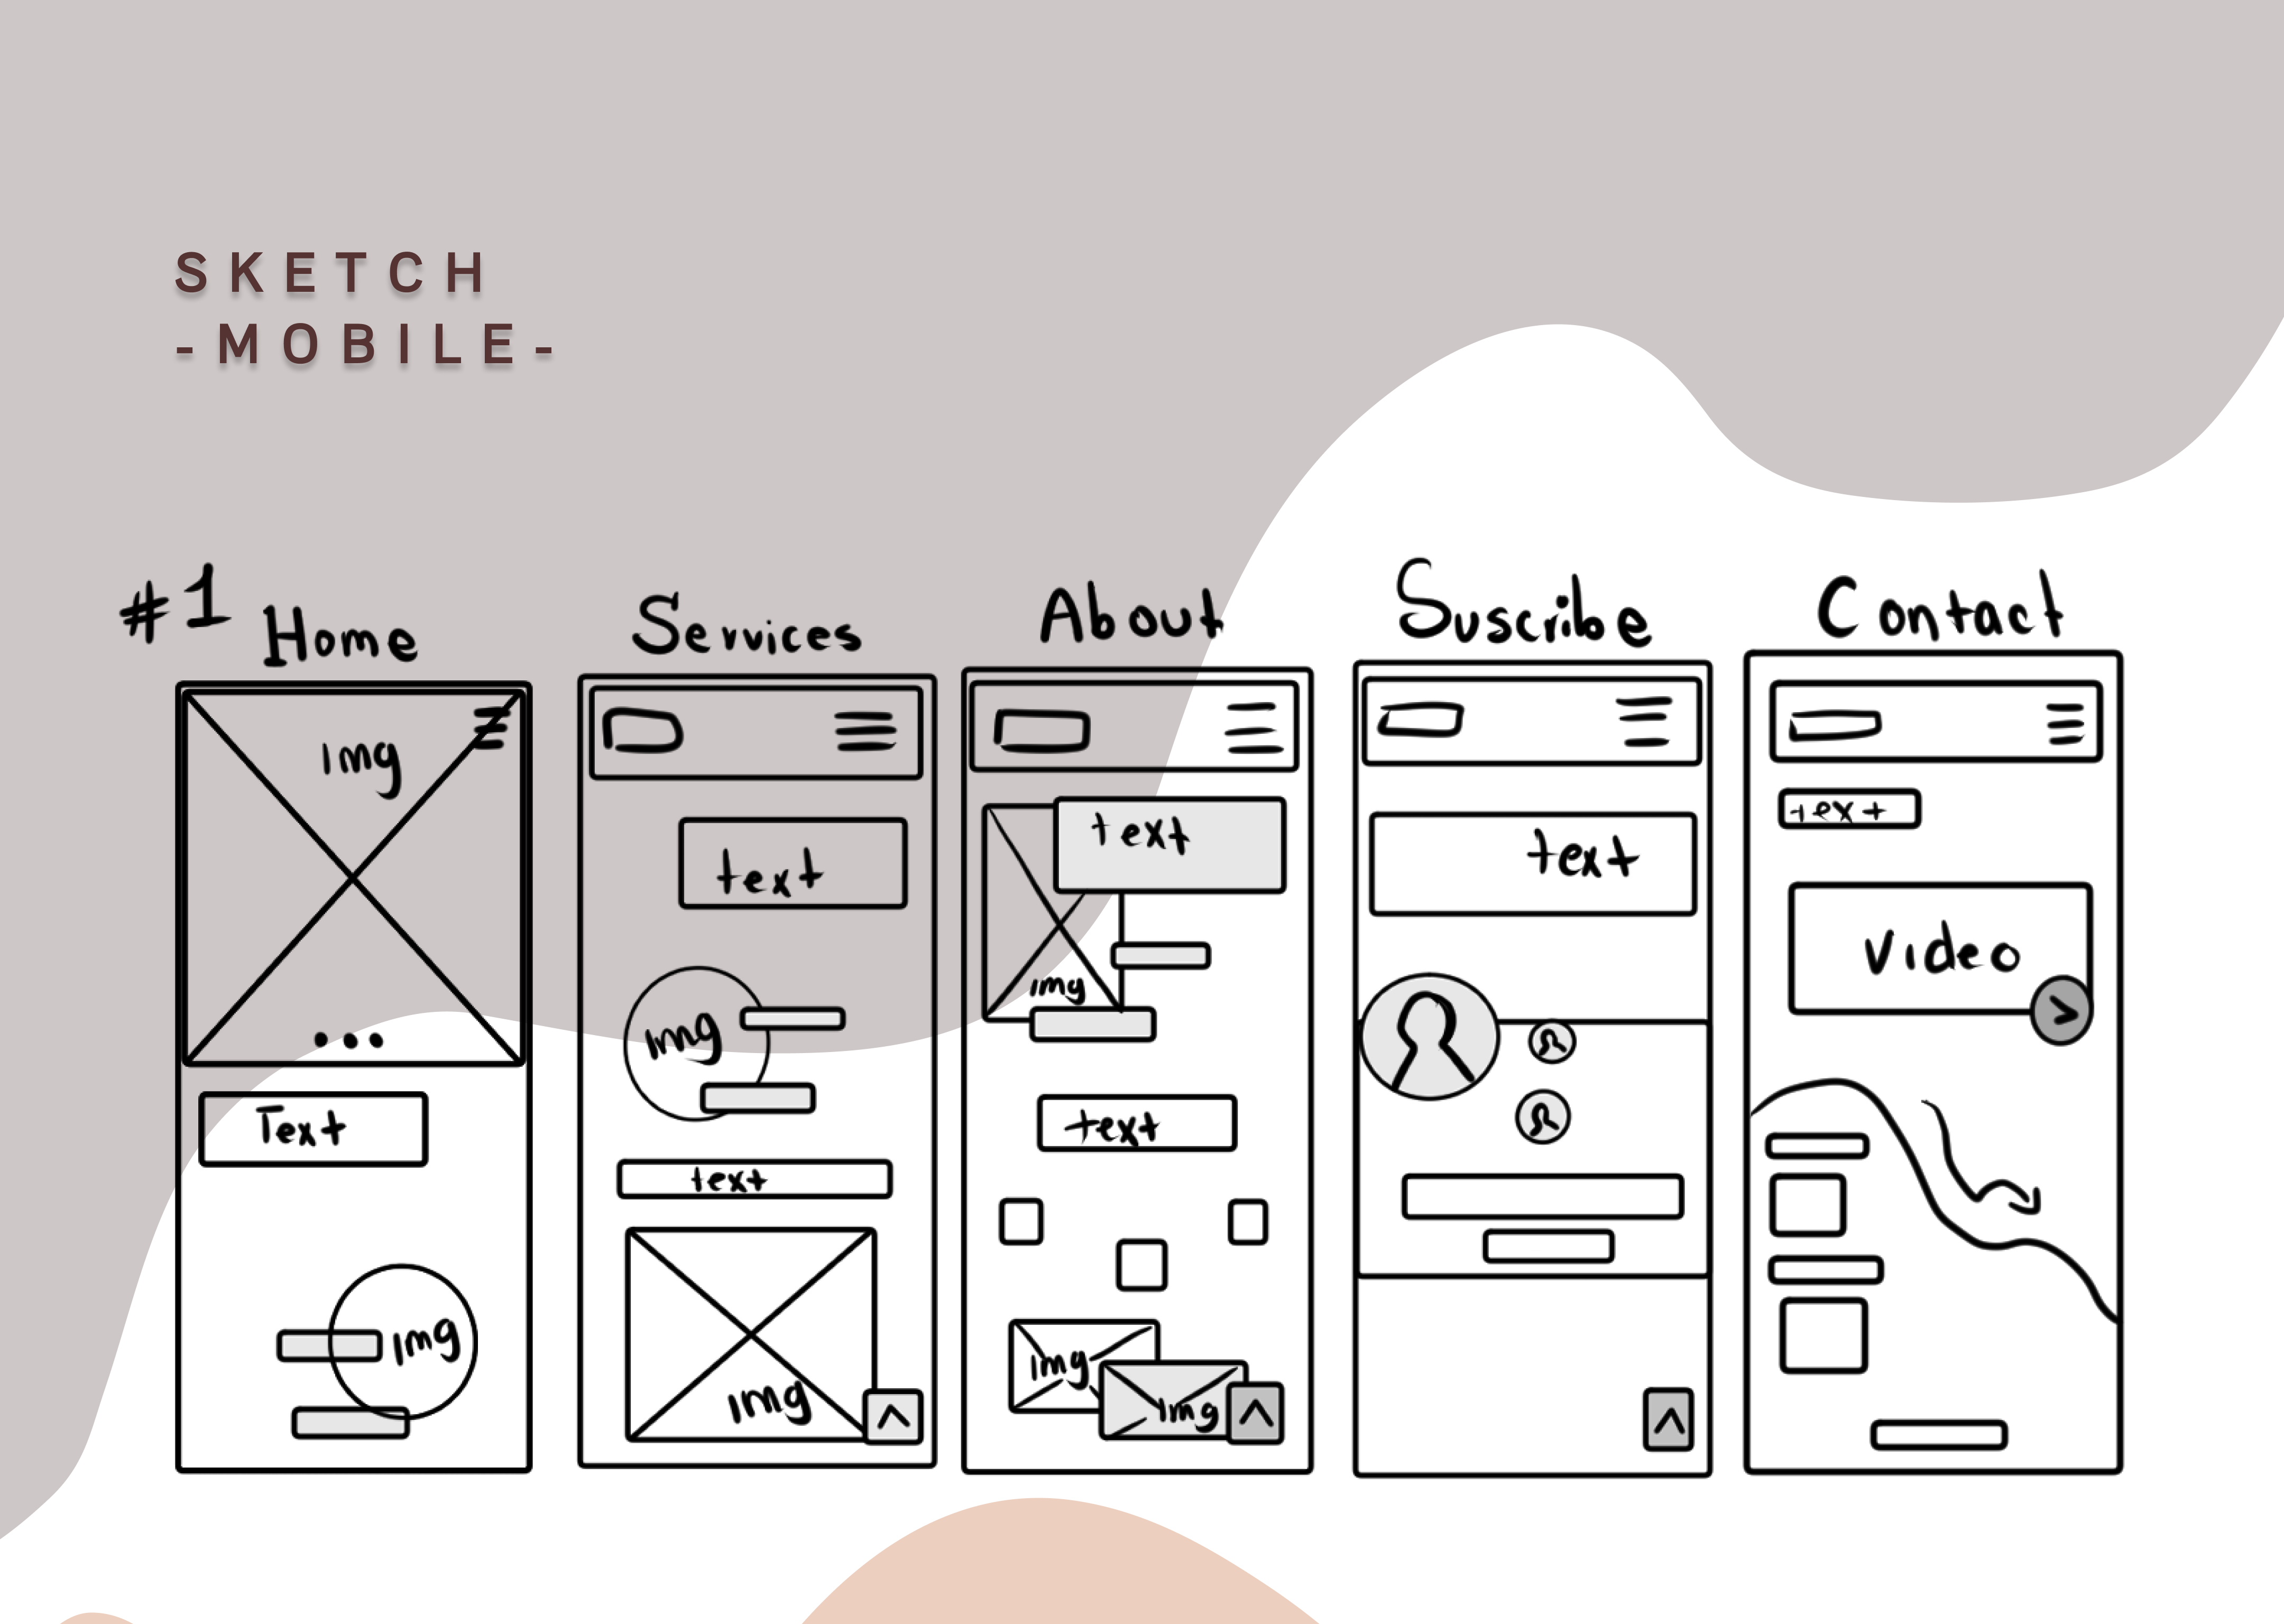 SKETCH
-MOBILE-
#1
Home
Img
Text
Img
Services
text
Img
text
Img
About
text
img
text
Img
Img
Suscribe
text
Contact
text
Video